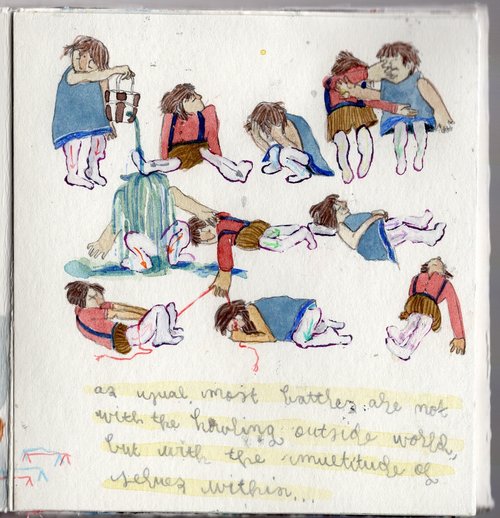 as usual, most battles are not
with the howling outside world,
but with the multitude of
selves within...